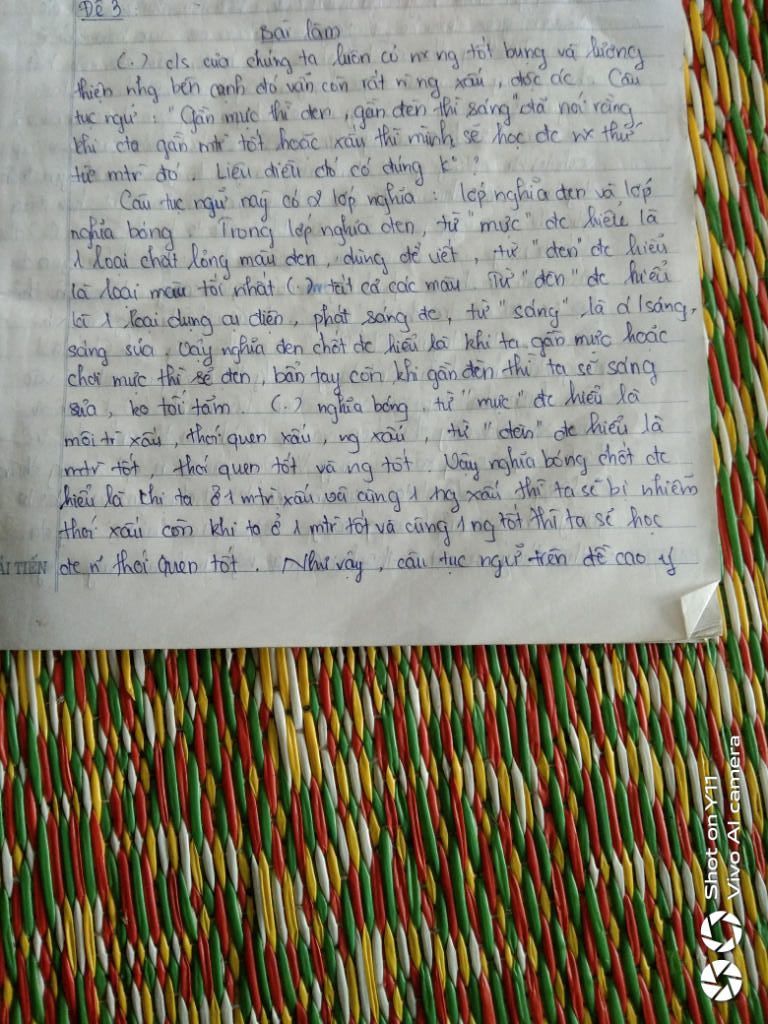 Đề 3
Bài làm
(.) c/s của chúng ta luôn có nx ng tốt bụng và lương
thiện nhg bên cạnh đó vẫn còn rất n` ng xấu, độc ác. Câu
tục ngữ: "Gần mực thì đen, gần đèn thì sáng" đã nói rằng
khi cta gần mtr tốt hoặc xấu thì mình sẽ học đc nx thứ
từ mtr đó. Liệu điều đó có đúng k°?
Câu tục ngữ này có 2 lớp nghĩa: lớp nghĩa đen và lớp
nghĩa bóng. Trong lớp nghĩa đen, từ "mực" đc hiểu là
1 loại chất lỏng màu đen, dùng để viết, từ "đen" đc hiểu
là loại màu tối nhất (.) tất cả các màu. Từ "đèn" đc hiểu
là 1 loại dụng cụ điện, phát sáng đc, từ "sáng" là a/sáng,
sáng sủa. Vậy nghĩa đen chốt đc hiểu là khi ta gần mực hoặc
chơi mực thì sẽ đen, bẩn tay còn khi gần đèn thì ta sẽ sáng
sủa, ko tối tăm. (.) nghĩa bóng, từ "mực" đc hiểu là
môi tr xấu, thói quen xấu, ng xấu, từ "đèn" đc hiểu là
mtr tốt, thói quen tốt và ng tốt. Vậy nghĩa bóng chốt đc
hiểu là khi ta ở 1 mtr xấu và cùng 1 ng xấu thì ta sẽ bị nhiễm
thói xấu còn khi ta ở 1 mtr tốt và cùng 1 ng tốt thì ta sẽ học
đc n` thói quen tốt. Như vậy, câu tục ngữ trên đề cao ý
ẢI TIẾN
Shot on Y11
Vivo AI camera